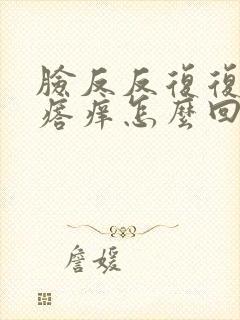 臉反反復復
痞痒怎麼回
詹媛